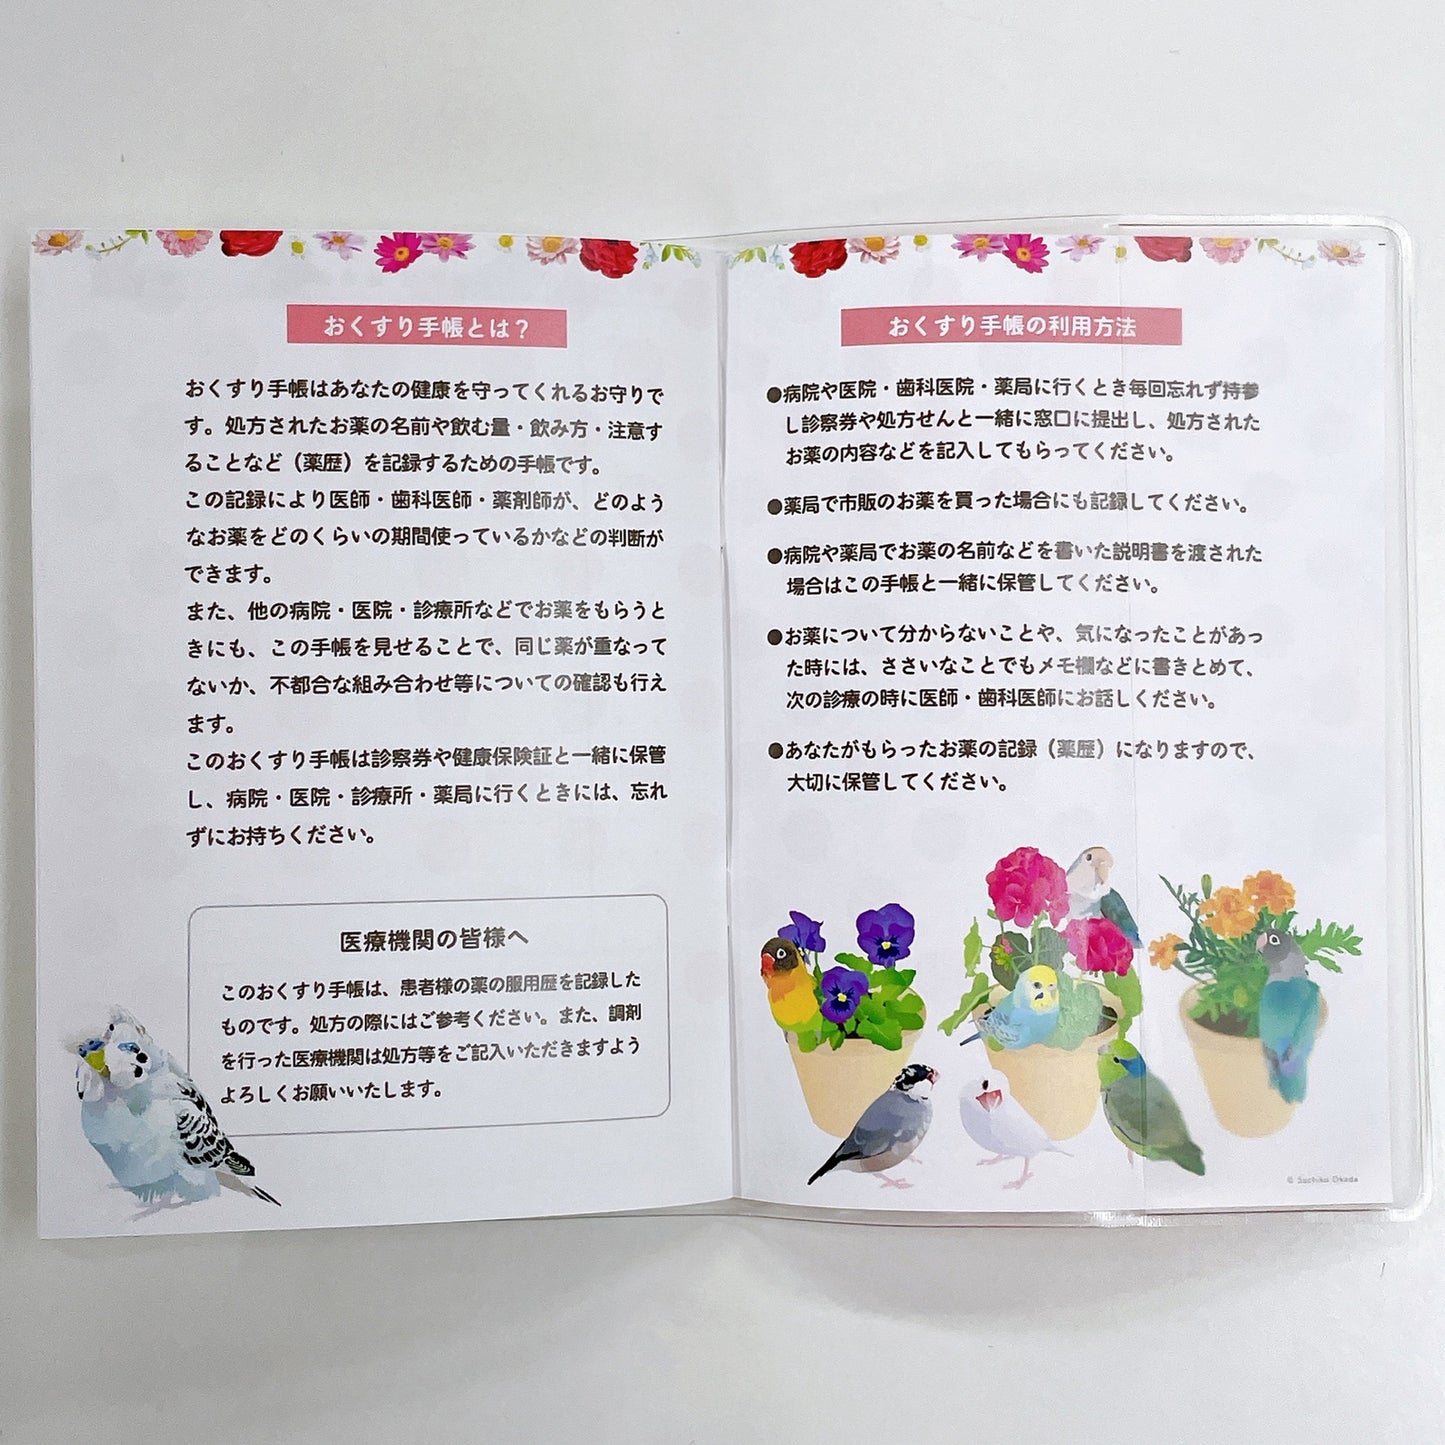 おくすり手帳とは？
おくすり手帳はあなたの健康を守ってくれるお守りで
す。処方されたお薬の名前や飲む量・飲み方・注意す
ることなど（薬歴）を記録するための手帳です。
この記録により医師・歯科医師・薬剤師が、どのよう
なお薬をどのくらいの期間使っているかなどの判断が
できます。
また、他の病院・医院・診療所などでお薬をもらうと
きにも、この手帳を見せることで、同じ薬が重なって
ないか、不都合な組み合わせ等についての確認も行え
ます。
このおくすり手帳は診察券や健康保険証と一緒に保管
し、病院・医院・診療所・薬局に行くときには、忘れ
ずにお持ちください。
医療機関の皆様へ
このおくすり手帳は、患者様の薬の服用歴を記録した
ものです。処方の際にはご参考ください。また、調剤
を行った医療機関は処方等をご記入いただきますよう
よろしくお願いいたします。
おくすり手帳の利用方法
●病院や医院・歯科医院・薬局に行くとき毎回忘れず持参
し診察券や処方せんと一緒に窓口に提出し、処方された
お薬の内容などを記入してもらってください。
●薬局で市販のお薬を買った場合にも記録してください。
●病院や薬局でお薬の名前などを書いた説明書を渡された
場合はこの手帳と一緒に保管してください。
●お薬について分からないことや、気になったことがあっ
た時には、ささいなことでもメモ欄などに書きとめて、
次の診療の時に医師・歯科医師にお話しください。
●あなたがもらったお薬の記録（薬歴）になりますので、
大切に保管してください。
© Sachiko Okada